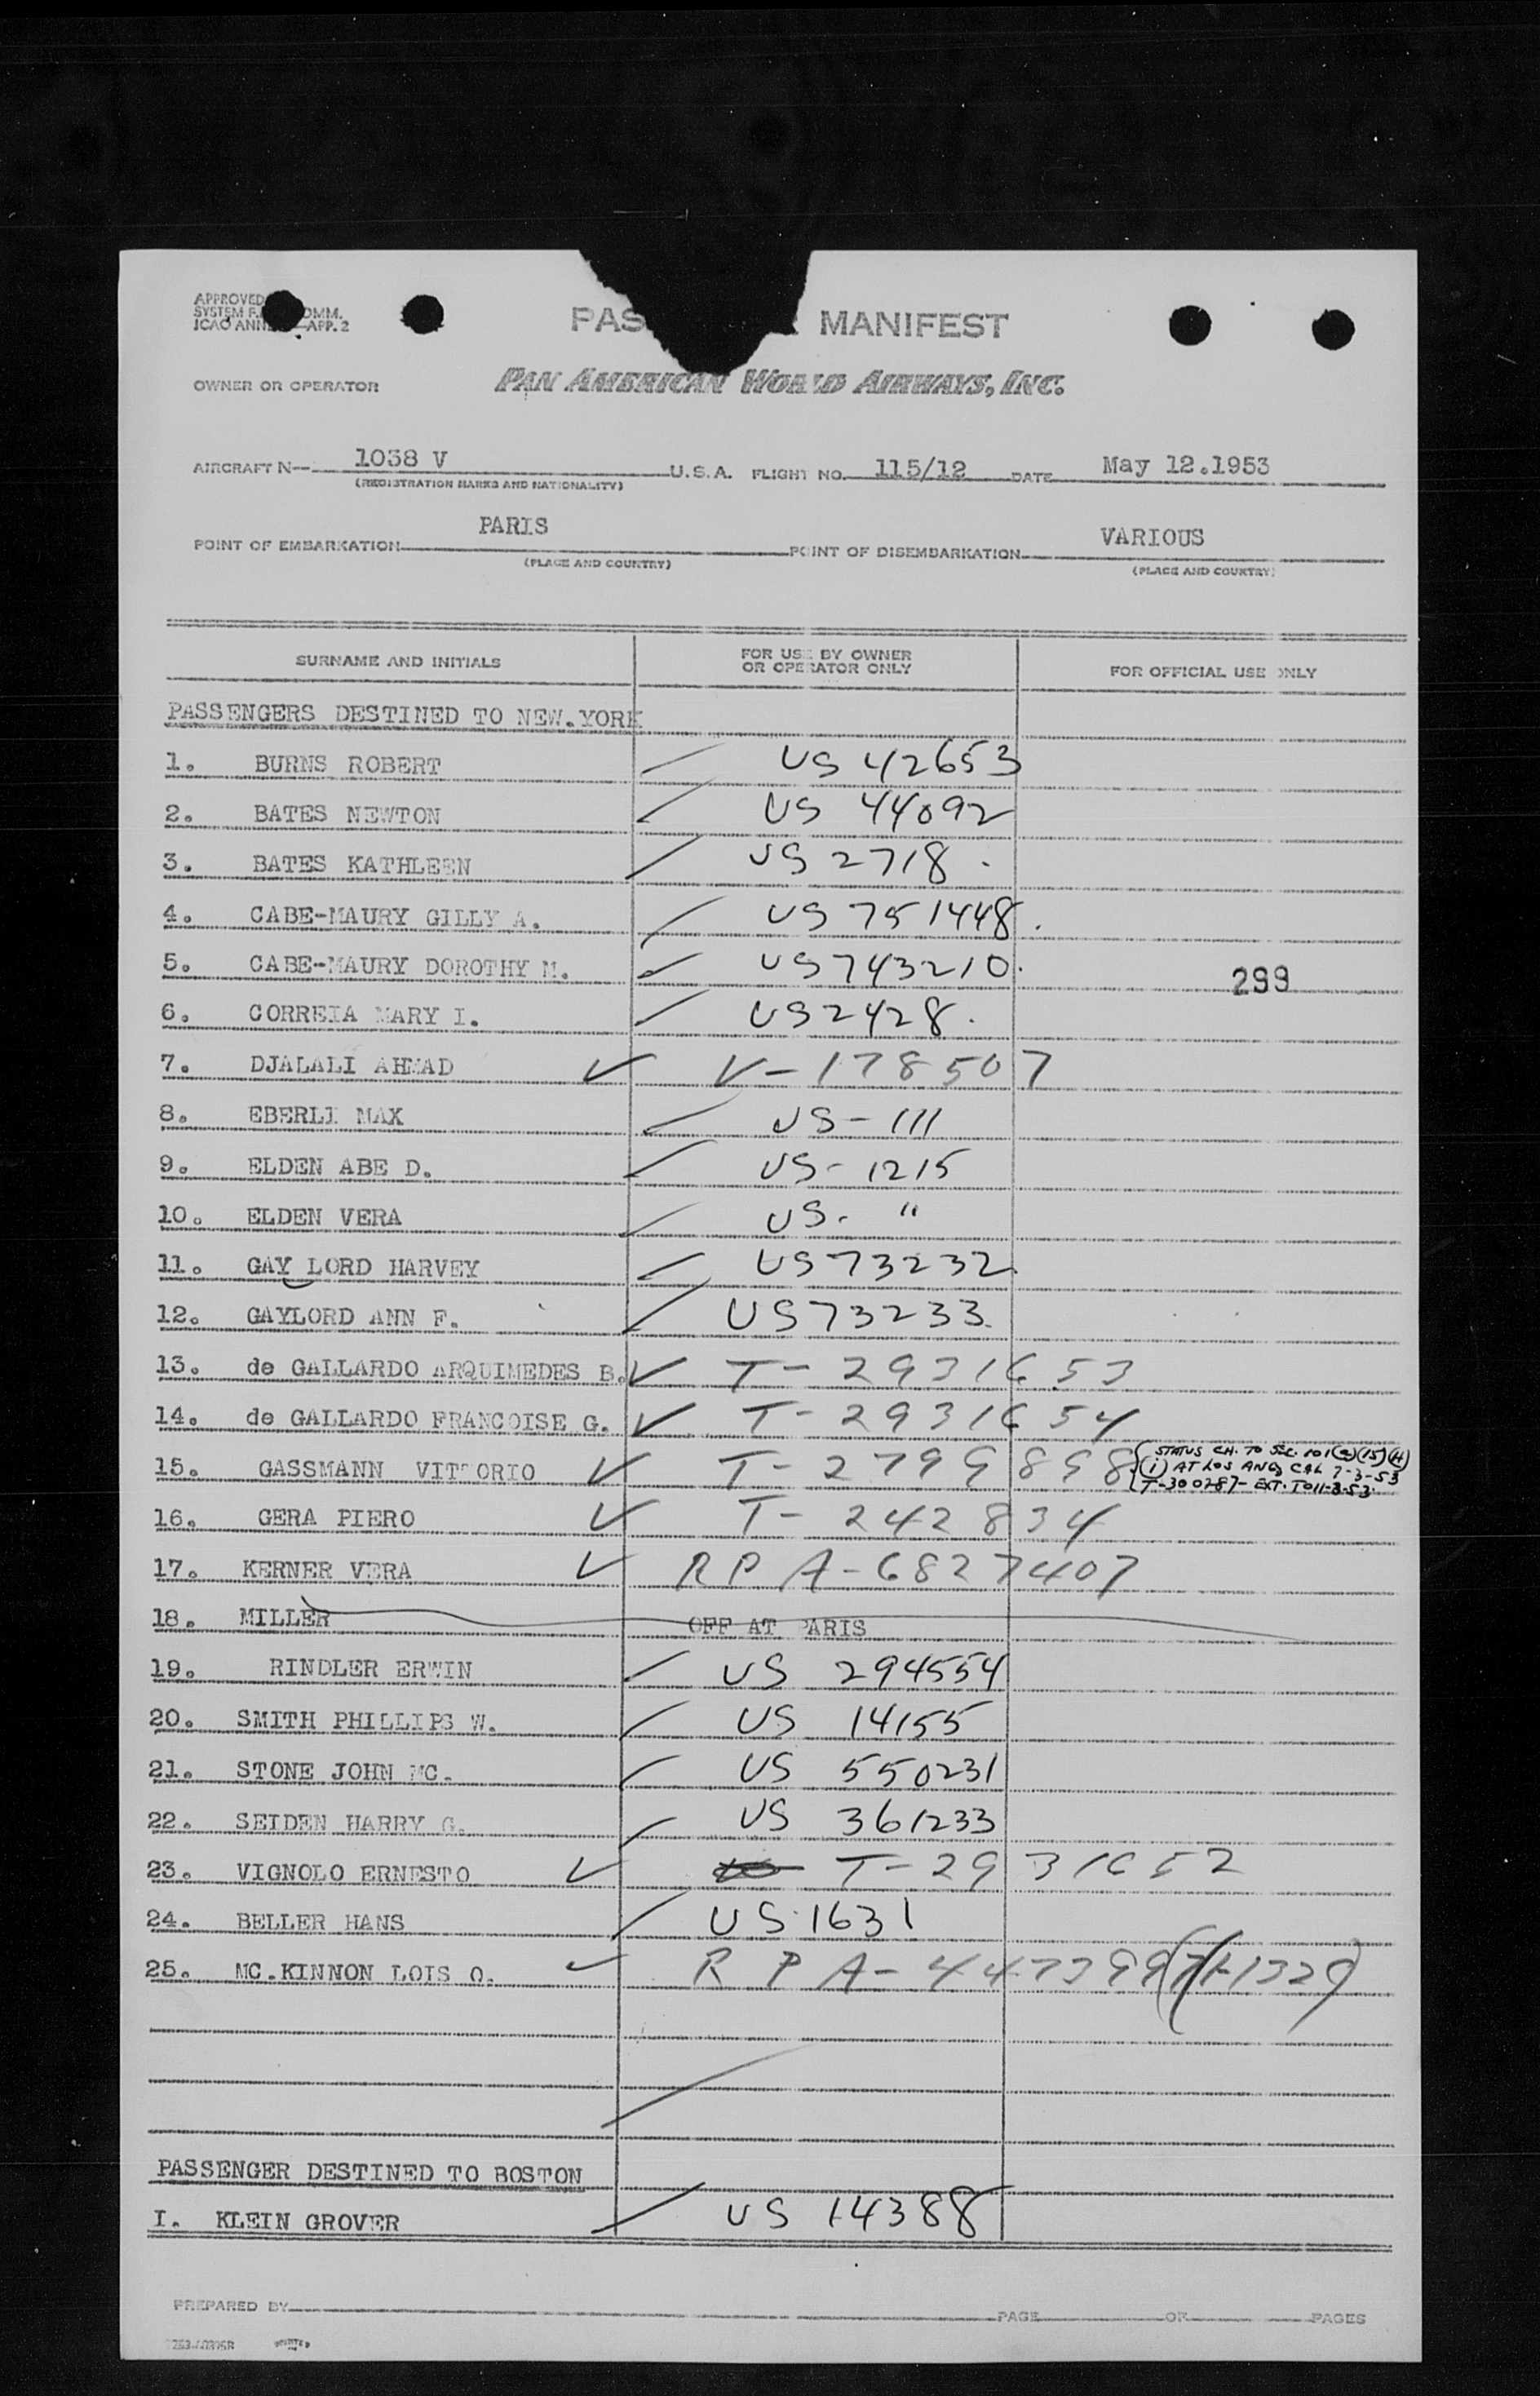 APPROVED
SYSTEM F. OMM.
ICAO ANN —APP. 2
PAS MANIFEST
OWNER OR OPERATOR PAN AMERICAN WORLD AIRWAYS, INC.
AIRCRAFT N— 1038 V U.S.A. FLIGHT NO. 115/12 DATE May 12.1953
(REGISTRATION MARKS AND NATIONALITY)
POINT OF EMBARKATION PARIS POINT OF DISEMBARKATION VARIOUS
(PLACE AND COUNTRY) (PLACE AND COUNTRY)
SURNAME AND INITIALS FOR USE BY OWNER OR OPERATOR ONLY FOR OFFICIAL USE ONLY
PASSENGERS DESTINED TO NEW.YORK
1. BURNS ROBERT US 42653
2. BATES NEWTON US 44092
3. BATES KATHLEEN US 2718.
4. CABE-MAURY GILLY A. US 751448.
5. CABE-MAURY DOROTHY M. US743210. 299
6. CORREIA MARY I. US2428.
7. DJALALI AHMAD ✓ V-178507
8. EBERLI MAX US-111
9. ELDEN ABE D. US-1215
10. ELDEN VERA US. "
11. GAY LORD HARVEY US73232.
12. GAYLORD ANN F. US73233.
13. de GALLARDO ARQUIMEDES B. ✓ T-2931653
14. de GALLARDO FRANCOISE G. ✓ T-2931654
15. GASSMANN VITTORIO ✓ T-2799898 STATUS CH. TO SEC. 101(a)(15)(H)
(i) AT LOS ANG, CAL 7-3-53
T-300787- EXT. TO 11-8-53
16. GERA PIERO ✓ T-242834
17. KERNER VERA ✓ R P A-6827407
18. MILLER OFF AT PARIS
19. RINDLER ERWIN US 294554
20. SMITH PHILLIPS W. US 14155
21. STONE JOHN MC. US 550231
22. SEIDEN HARRY G. US 361233
23. VIGNOLO ERNESTO ✓ T-2931652
24. BELLER HANS US.1631
25. MC.KINNON LOIS O. ✓ R P A-447399
PASSENGER DESTINED TO BOSTON
I. KLEIN GROVER US 14388
PREPARED BY PAGE OF PAGES